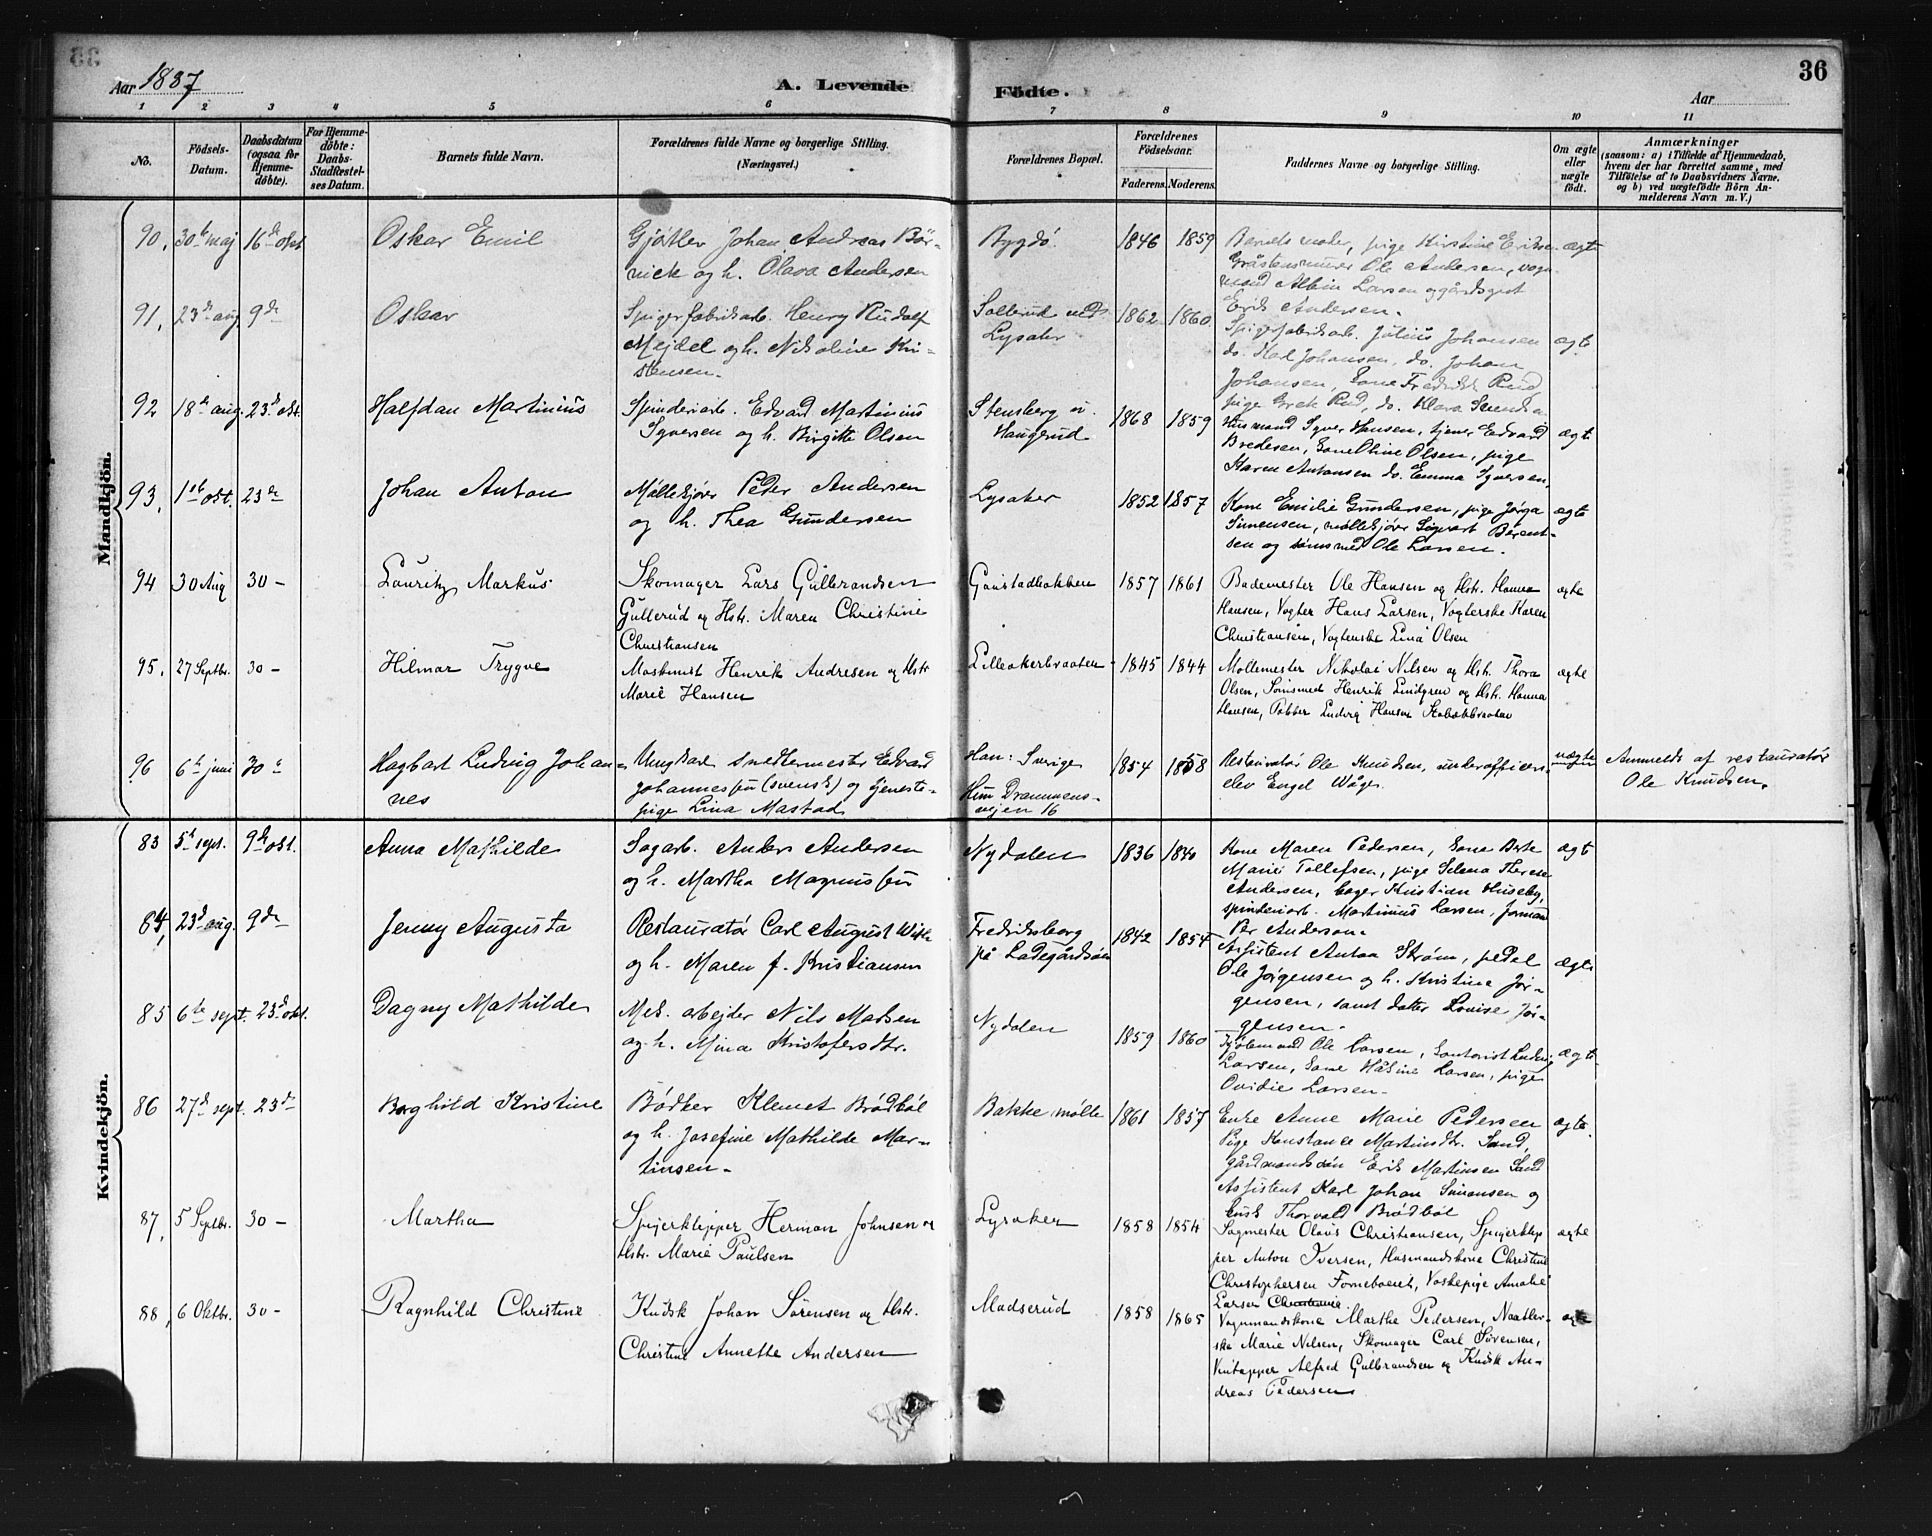 36
Aar 1887
A. Levende
Födte.
Aar
1 2 3 4 5 6 7 8 9 10 11
No.
Födsels-
Datum.
Daabsdatum
(ogsaa for
Hjemme-
döbte).
For Hjemme-
döbte:
Daabs-
Stadfæstel-
ses Datum.
Barnets fulde Navn.
Forældrenes fulde Navne og borgerlige Stilling.
(Næringsvei.)
Forældrenes Bopæl.
Forældrenes
Födselsaar.
Faderens. Moderens.
Faddernes Navne og borgerlige Stilling.
Om ægte
eller
uægte
födt.
Anmærkninger
(saasom: a) i Tilfælde af Hjemmedaab,
hvem der har forrettet samme, med
Tilföielse af to Daabsvidners Navne,
og b) ved uægtefödte Börn An-
melderens Navn m. V.)
Mandkjön.
90, 30te maj 16de okt. Oskar Emil
Gjøtler Johan Andreas Bør-
nick og h. Olava Andersen
Bygdø 1846 1859
Barnets moder, pige Kirstine Eriksen
Gråstensmurer Ole Andersen, vogn-
mand Albin Larsen og gårdsgut
Erik Andersen.
ægte
91, 23de aug. 9de Oskar
Spigerfabrikarb. Henry Rudolf
Mejdel og h. Nikoline Kri-
stensen.
Sollerud ved
Lysaker
1862 1860
Spigerfabrikarb. Julius Johansen
do. Karl Johansen, do. Johan
Johansen, kone Fredrikke Rud
pige Grete Rud, do. Klara Svendsen
ægte
92 18de aug. 23de okt. Halfdan Martinius
Spinderiarb. Edvard Martinius
Syversen og h. Birgitte Olsen
Stensberg v.
Haugerud
1868 1859
Husmand Syver Hansen, tjener Edvard
Bredesen, kone Oline Olsen, pige
Karen Antonsen do. Emma Syversen,
ægte
93, 1ste okt. 23de Johan Anton
Møllekjører Peder Andersen
og h. Thea Gundersen
Lysaker 1852 1857
Kone Emilie Gundersen, pige Jørga
Simensen, møllekjører Sigvart Bérent-
sen og sønn med Ole Larsen.
ægte
94 30 Aug 30 - Lauritz Markus
Skomager Lars Gulbrandsen
Gullerud og Hstr. Maren Christine
Christiansen
Gaustadbakken 1857 1861
Bademester Ole Hansen og Hstr. Hanna
Hansen, Vogter Hans Larsen, Vogterske Karen
Christiansen, Vogterske Lina Olsen
ægte
95, 27 Septbr. 30 - Hilmar Trygve
Maskinist Henrik Andresen og Hstr.
Marie Hansen
Lilleakerbraaten 1845 1844
Møllemester Nikolai Nilsen og Hstr. Thora
Olsen, Henrik Lindgren og Hstr. Hanna
Hansen, Ludvig Hansen
ægte
96 6te juni 30te Hagbart Ludvig Johan-
nes
Ungkarl snedkermester Edvard
Johannessen (svensk) og tjeneste-
pige Lina Mastad
Han: Sverige
Hun Drammens-
vejen 16
1854 1858
Restauratør Ole Knudsen, underofficers-
elev Engel Wåge.
uægte
Anmeldt af restauratør
Ole Knudsen.
Kvindekjön.
83 5te sept. 9de okt. Anna Mathilde
Sagarb. Anders Andersen
og h. Martha Magnussen
Nydalen 1836 1840
Kone Maren Pedersen, kone Berte
Marie Tollefsen, pige Selma Therese
Andersen, bager Kristian Huseby,
spinderiarb. Martinius Larsen, formand
Per Anderson.
ægte
84, 23de aug. 9de Jenny Augusta
Restauratør Carl August With
og h. Maren f. Kristiansen
Fredriksborg
på Ladegårdsøen
1842 1854
Assistent Anton Strøm, pedel
Ole Jørgensen og h. Kristine Jør-
gensen, samt datter Louise Jør-
gensen.
ægte
85 6te sept. 23de okt. Dagny Mathilde
Mek. arbejder Nils Madsen
og h. Mina Kristofersdtr.
Nydalen 1859 1860
Ole Larsen, kontorist Ludvig
Larsen, kone Larsen, pige
Ovidie Larsen.
ægte
86 27de sept. 23de Borghild Kristine
Bødker Klemet Brødbøl
og h. Josefine Mathilde Mar-
tinsen.
Bakke mølle 1861 1857
Enke Anne Marie Pedersen
Pige Konstance Martinsdtr. Sand,
gårdmandssøn Erik Martinsen Sand
Assistent Karl Johan Simonsen og
kusk Thorvald Brødbøl
ægte.
87, 5 Septbr. 30 - Martha
Spigerklipper Herman Johnsen og
Hstr. Marie Paulsen
Lysaker 1858 1854
Sagmester Olaus Christiansen, Spigerklip-
per Anton Iversen, Husmandskone Christine
Christophersen Forneboeiet, Vaskepige Amalie
Larsen Christiania.
ægte
88, 6 Oktbr. 30 - Ragnhild Christine
Kudsk Johan Sørensen og Hstr.
Christine Annette Andersen
Madserud 1858 1865
Vognmandskone Marthe Pedersen, Naatler-
ske Marie Nilsen, Skomager Carl Sørensen,
Vintapper Alfred Gulbrandsen og Kudsk An-
dreas Pedersen
ægte